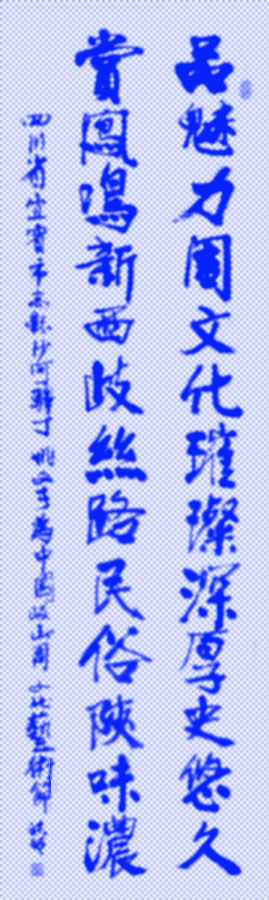 品魅力周文化璀璨深厚史悠久
賞鳳鳴新西岐絲路民俗陝味濃
四川省宜賓市高縣沙河驛丁為中國岐山周文化藝術節